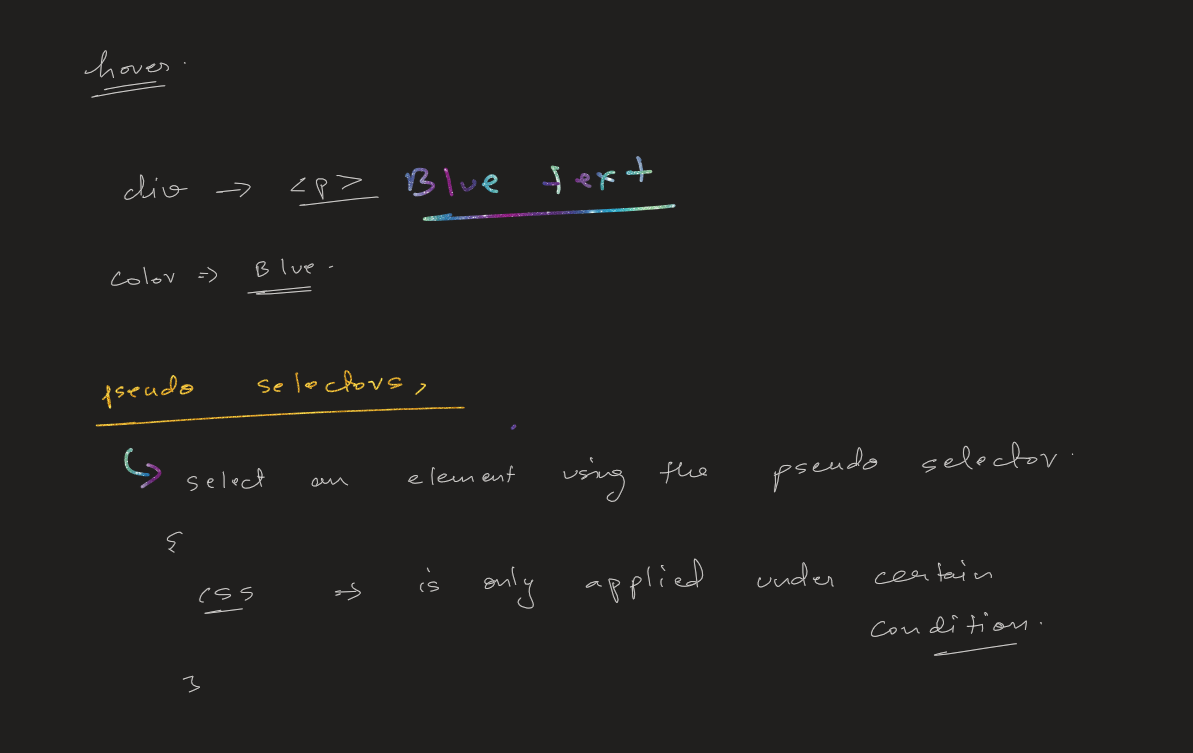 hover.
div → <p> Blue text
color => Blue.
pseudo selectors,
↳ select an element using the pseudo selector.
{
css => is only applied under certain
condition.
}